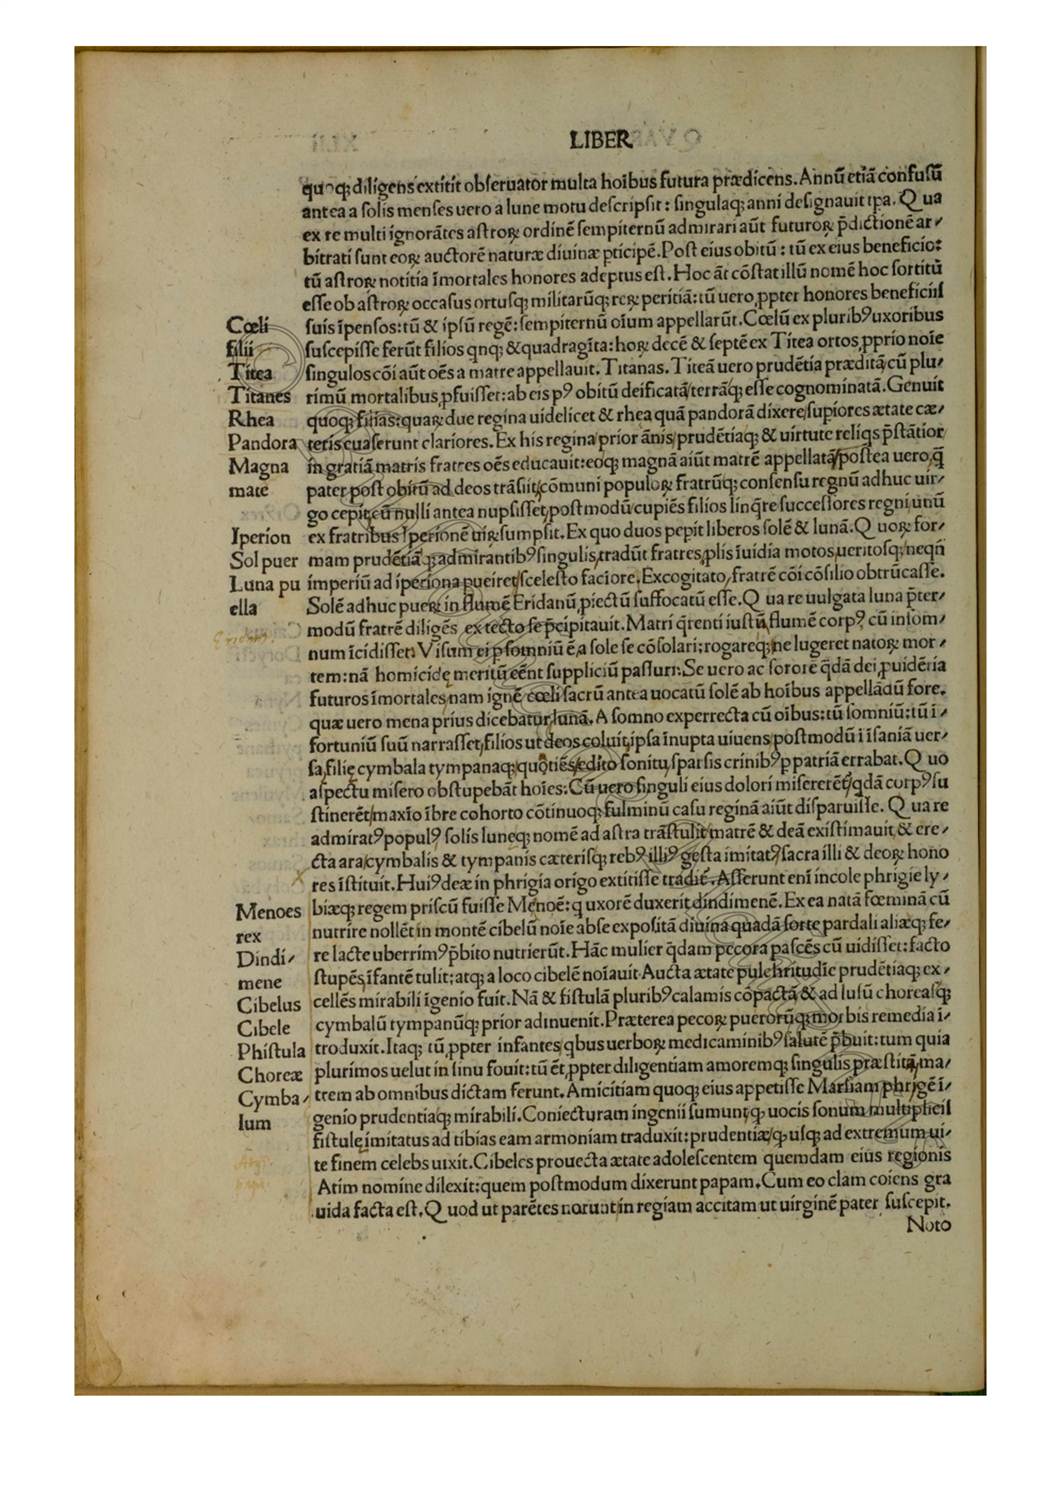 LIBER
quoq; diligens extitit obseruator multa hoībus futura prædicens. Annū etiā confusū
antea a solis menses uero a lune motu descripsit: singulaq; anni designauit tꝑa. Q ua
ex re multi ignorātes astroꝝ ordinē sempiternū admirari aūt futuroꝝ p̄dictionē ar⸗
bitrati sunt eoꝝ auctorē naturæ diuinæ pticipē. Post eius obitū: tū ex eius beneficio:
tū astroꝝ notitia īmortales honores adeptus est. Hoc āt cōstat illū nomē hoc sortitū
esse ob astroꝝ occasus ortusq; militarūq; reꝝ peritiā: tū uero ꝓpter honores beneficiis
Cœli
suis īpensos: tū & ipsū regē: sempiternū oīum appellarūt. Cœlū ex pluribꝰ uxoribus
filii
suscepisse ferūt filios qnq; & quadragīta: hoꝝ decē & septē ex Titea ortos, pprio noīe
Titea
singulos cōi aūt oēs a matre appellauit. Titanas. Titeā uero prudētia præditā, cū plu⸗
Titanes
rimū mortalibus ꝓfuisset: ab eis pꝰ obitū deificatā, terrāq; esse cognominatā. Genuit
Rhea
quoq; filias: quaꝝ due regina uidelicet & rhea quā pandorā dixere, supiores ætate cæ⸗
Pandora
teris euaserunt clariores. Ex his regina prior ānis, prudētiaq; & uirtute reliqs p̄stātior
Magna
in gratiā matris fratres oēs educauit: eoq; magnā aiūt matrē appellatā, postea uero, q̄
mate
pater post obitū ad deos trāsiit, cōmuni populoꝝ fratrūq; consensu regnū adhuc uir⸗
go cepit, cū nulli antea nupsisset, postmodū cupiēs filios linq̄re successores regni unū
Iperion
ex fratribus Iperionē uiꝝ sumpsit. Ex quo duos pepit liberos solē & lunā. Q uoꝝ for⸗
Sol puer
mam prudētiāq; admirantibꝰ singulis, tradūt fratres, plis īuidia motos, ueritosq; neqn̄
Luna pu
imperiū ad iperiona pueiret, scelesto faciore. Excogitato, fratrē cōi cōsilio obtrūcasse.
ella
Solē adhuc pueꝝ in flumē Eridanū, piectū suffocatū esse. Q ua re uulgata luna p̄ter⸗
modū fratrē diligēs ex tecto se p̄cipitauit. Matri q̄renti iustū, flumē corpꝰ cū in som⸗
num īcidisset: Visum ei p̄ somniū ē, a sole se cōsolari: rogareq; ne lugeret natoꝝ mor⸗
tem: nā homicide meritū eēnt suppliciū passuri: Se uero ac sororē q̄dā dei ꝓuidētia
futuros īmortales, nam ignē cœli sacrū antea uocatū solē ab hoībus appellādū fore.
quæ uero mena prius dicebatur, lunā. A somno experrecta cū oībus: tū somniū: tū i⸗
fortuniū suū narrasset, filios ut deos coluit, ipsa īnupta uiuens, postmodū i īsaniā uer⸗
sa, filię cymbala tympanaq; quotiēs, edito sonitu, sparsis crinibꝰ p patriā errabat. Q uo
aspectu misero obstupebāt hoīes: Cū uero singuli eius dolori misererēt, qdā corpꝰ su
stinerēt, maxīo ībre cohorto cōtinuoq; fulminū casu reginā aiūt disparuisse. Q ua re
admiratꝰ populꝰ solis luneq; nomē ad astra trāstulit, matrē & deā existimauit, & ere⸗
cta ara, cymbalis & tympanis cæterisq; rebꝰ illiꝰ gesta imitatꝰ, sacra illi & deoꝝ hono
res īstituit. Huiꝰ deæ in phrigia origo extitisse tradit̄. Asserunt enī incole phrigie ly⸗
Menoes
biæq; regem priscū fuisse Menoē: q uxorē duxerit dindimenē. Ex ea natā fœminā cū
rex
nutrire nollēt in montē cibelū noīe abse expositā diuina quadā sorte pardali aliæq; fe⸗
Dindi⸗
re lacte uberrimꝰ p̄bito nutrierūt. Hāc mulier q̄dam pecora pascēs cū uidisset: facto
mene
stupēs īfantē tulit: atq; a loco cibelē noīauit. Aucta ætate pulchritudīe prudētiaq; ex⸗
Cibelus
cellēs mirabili īgenio fuit. Nā & fistulā pluribꝰ calamis cōpactā & ad lusū choreasq;
Cibele
cymbalū tympanūq; prior adinuenit. Præterea pecoꝝ puerorūq; morbis remedia i⸗
Phistula
troduxit. Itaq; tū, ppter infantes, qbus uerboꝝ medicaminibꝰ salutē p̄buit: tum quia
Choreæ
plurimos uelut in sinu fouit: tū ēt, ppter diligentiam amoremq; singulis præstitā, ma⸗
Cymba⸗
trem ab omnibus dictam ferunt. Amicitiam quoq; eius appetisse Marsiam phrigē i⸗
lum
genio prudentiaq; mirabili. Coniecturam ingenii sumunt, q, uocis sonum multiplicis
fistulę imitatus ad tibias eam armoniam traduxit: prudentiæ, q, usq; ad extremum ui⸗
te finem celebs uixit. Cibeles prouecta ætate adolescentem quemdam eius regionis
Atim nomine dilexit: quem postmodum dixerunt papam. Cum eo clam coiens gra
uida facta est. Q uod ut parētes norunt, in regiam accitam ut uirginē pater suscepit.
Noto